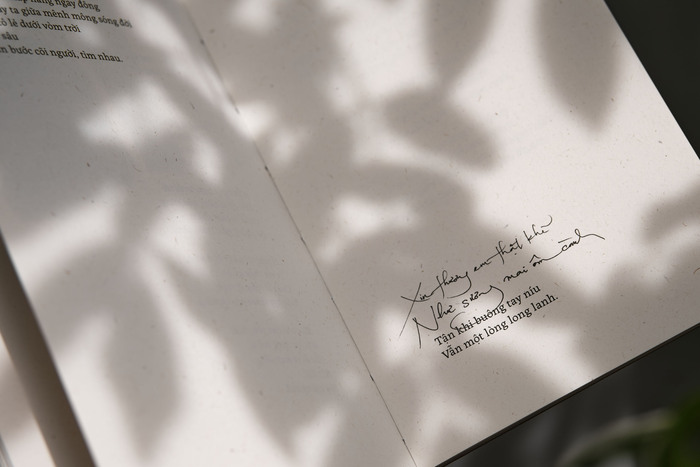 ngày đông
ta giữa mênh mông sóng đời
lẻ dưới vòm trời
sâu
bước cõi người, tìm nhau.
Xin thương em thật khẽ
Như sương mai ôm cành
Tận khi buông tay níu
Vẫn một lòng long lanh.